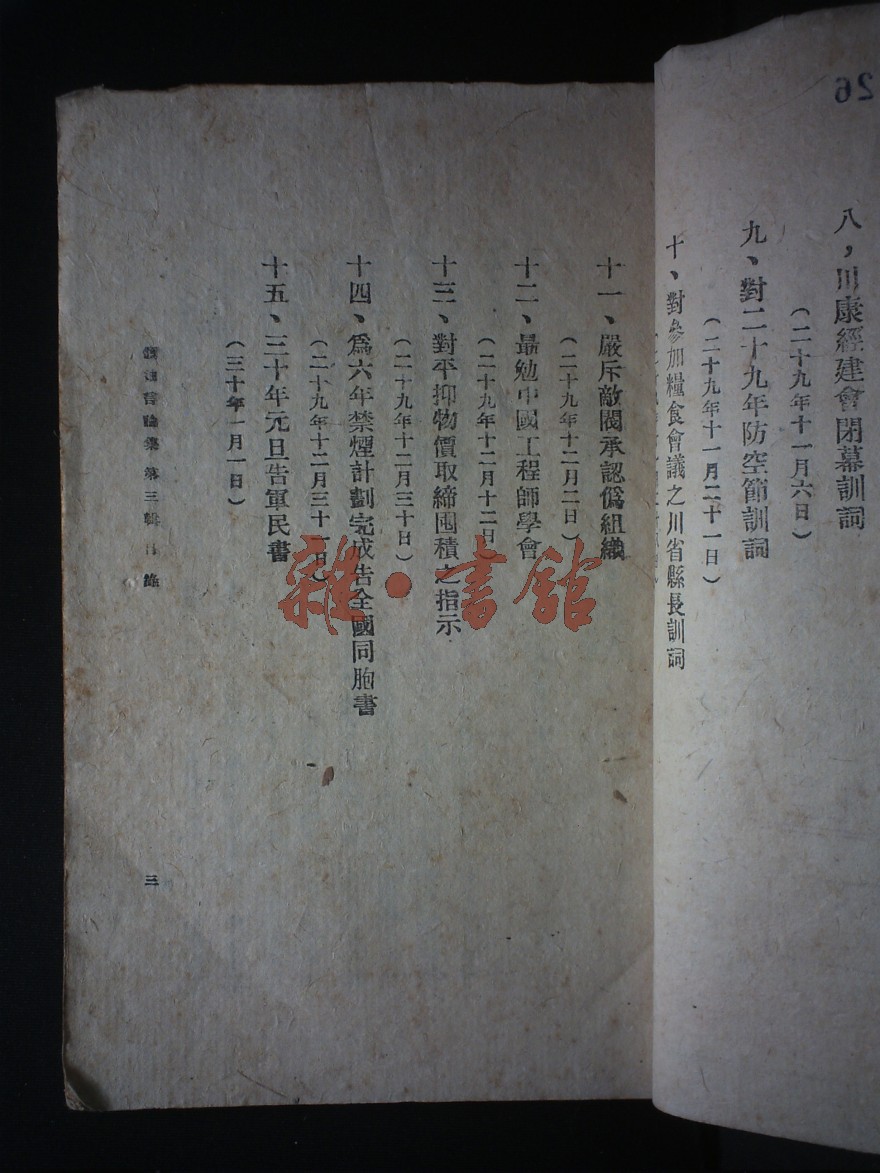 26
八，川康經建會閉幕訓詞
（二十九年十一月六日）
九、對二十九年防空節訓詞
（二十九年十一月二十一日）
十、對參加糧食會議之川省縣長訓詞
十一、嚴斥敵閥承認僞組織
（二十九年十二月二日）
十二、勗勉中國工程師學會
（二十九年十二月十二日）
十三、對平抑物價取締囤積之指示
（二十九年十二月三十日）
十四、爲六年禁煙計劃完成告全國同胞書
（二十九年十二月三十一日）
十五、三十年元旦告軍民書
（三十年一月一日）
言論集 第三輯 目錄
三
雜·書館